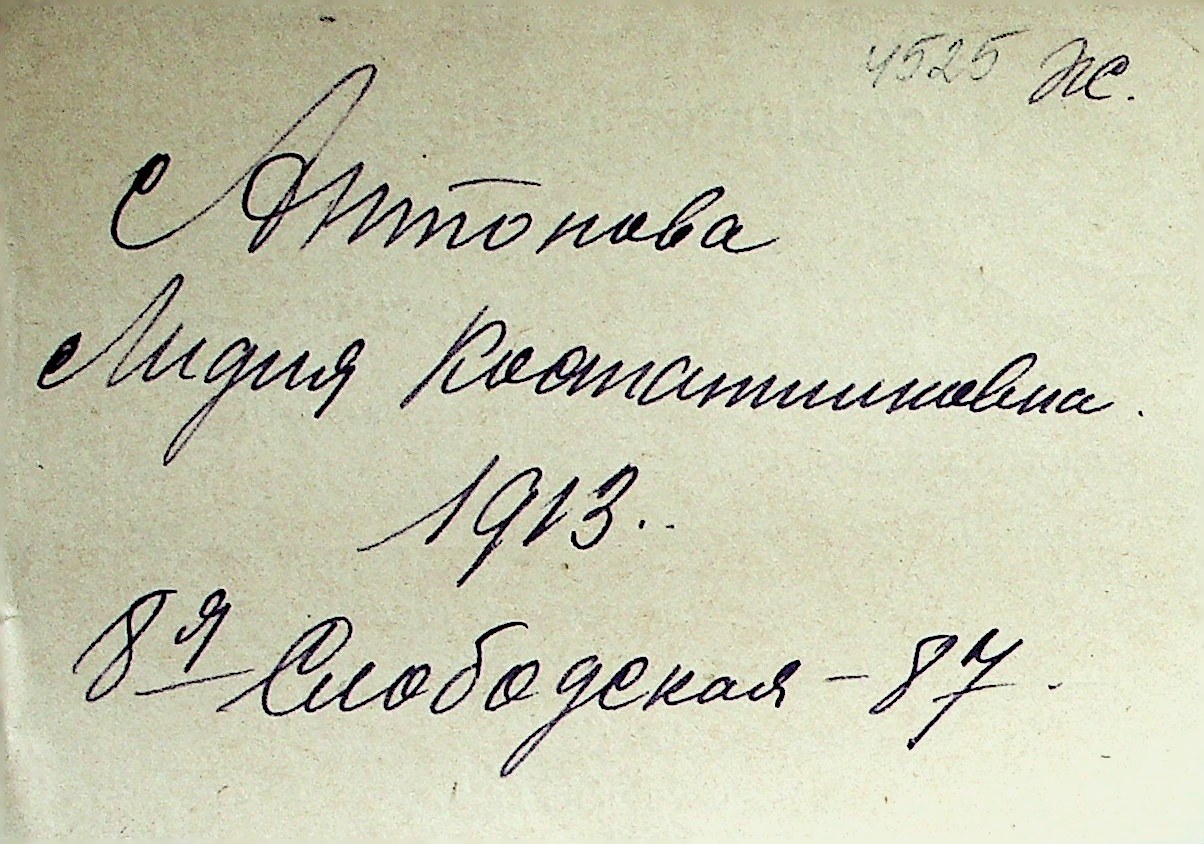 4525 Ж.
Антонова
Лидия Костантиновна.
1913..
8я Слободская - 87.